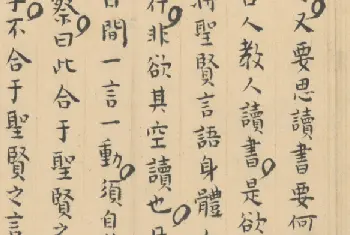 又要思讀書要何
古人教人讀書是欲
將聖賢言語身體
行非欲其空讀也
日間一言一動須自
察曰此合于聖賢之
不合于聖賢之言